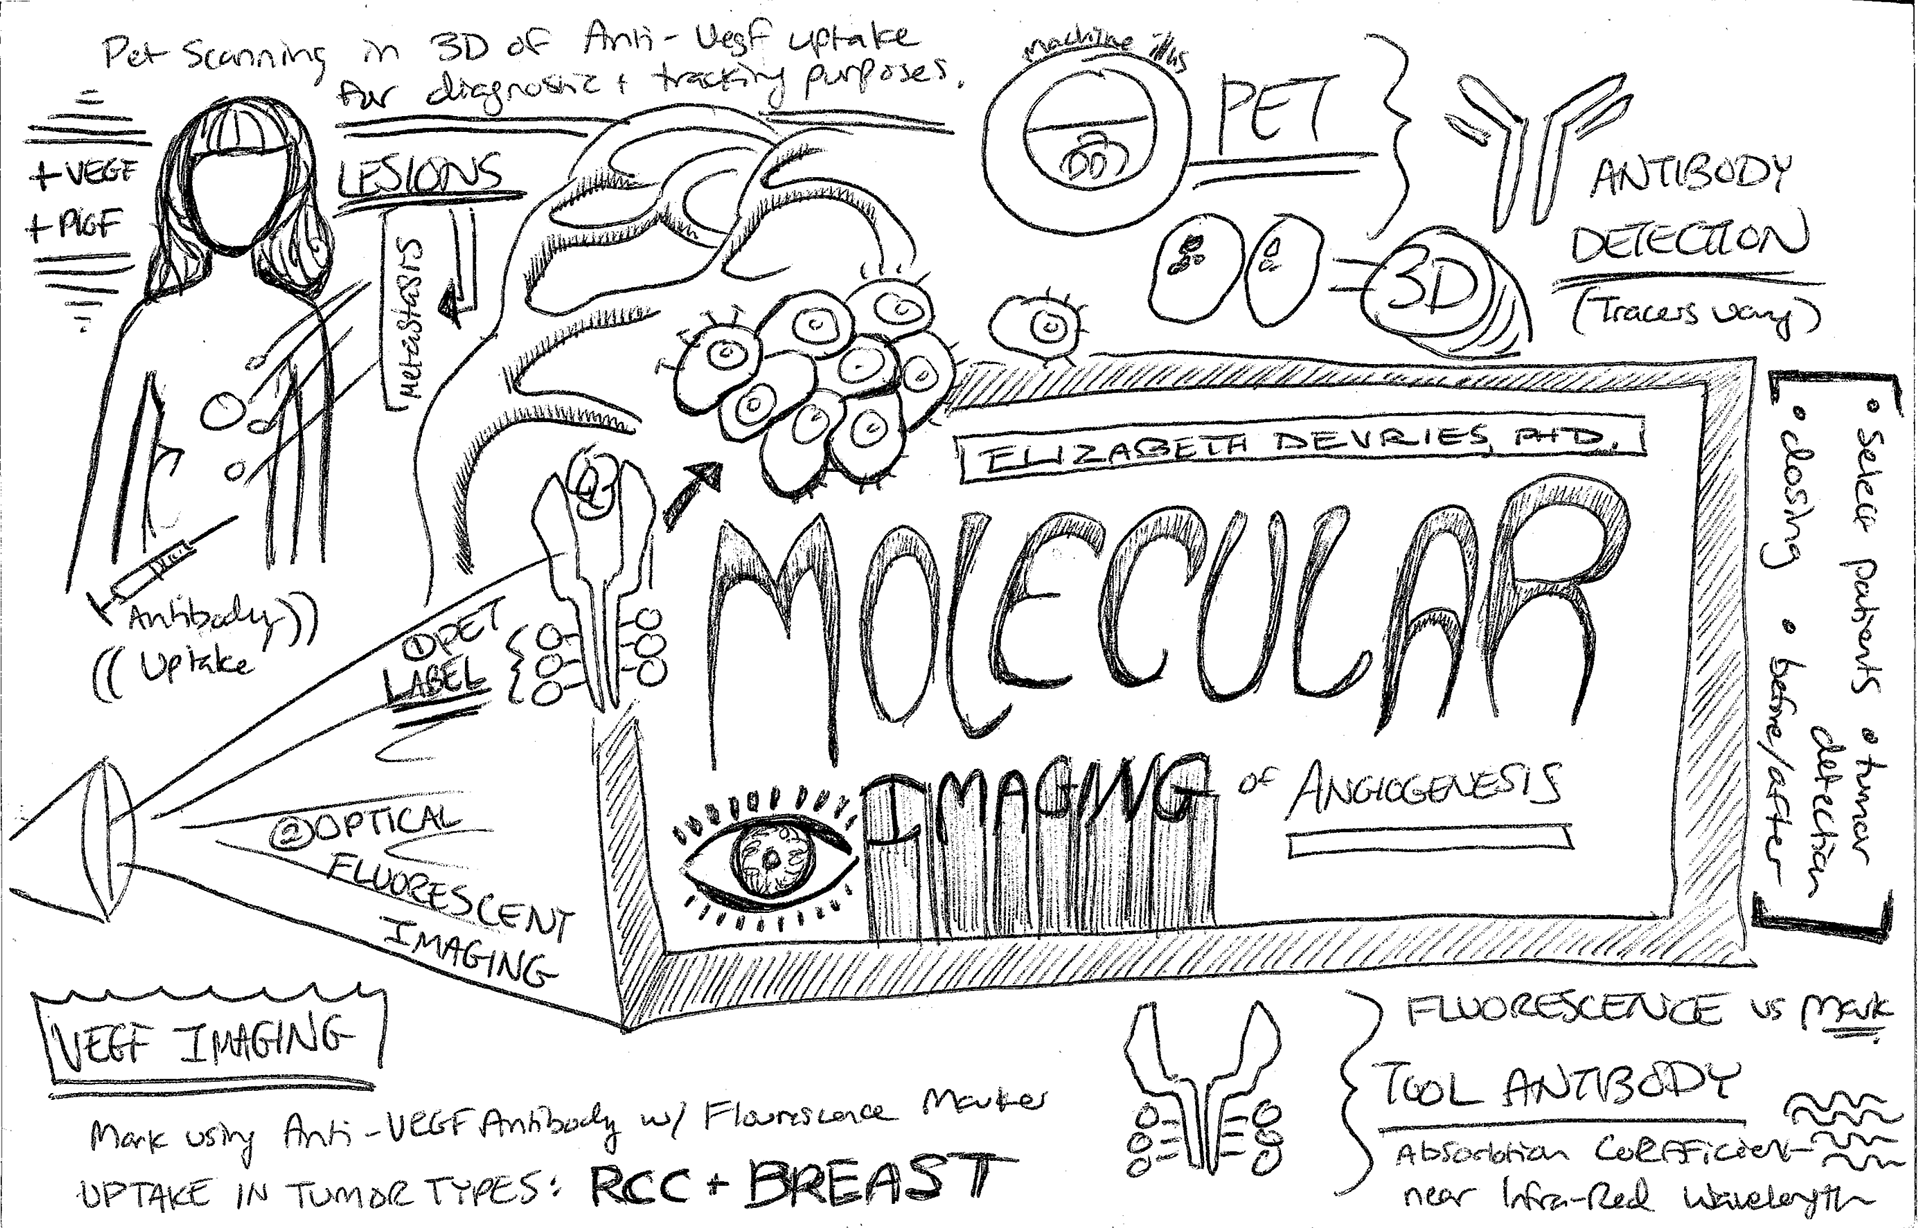 Pet Scanning in 3D of Anti-Vegf uptake
for diagnostic + tracking purposes.
+ VEGF
+ PlGF
LESIONS
Metastasis
Antibody
Uptake
PET
ANTIBODY
DETECTION
(Tracers vary)
3D
ELIZABETH DEVRIES, PHD.
MOLECULAR
IMAGING of ANGIOGENESIS
• Select patients • tumor
detection
• dosing • before/after
① PET
LABEL
② OPTICAL
FLUORESCENT
IMAGING
VEGF IMAGING
Mark using Anti-VEGF Antibody w/ Flourescence Marker
UPTAKE IN TUMOR TYPES: RCC + BREAST
FLUORESCENCE vs Mark
TOOL ANTIBODY
Absorbtion Coefficient
near Infra-Red Wavelength